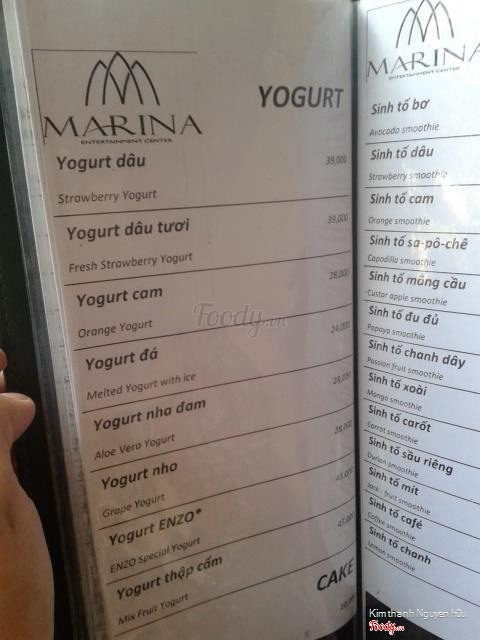 MARINA
ENTERTAINMENT CENTER
YOGURT
Yogurt dâu 39,000
Strawberry Yogurt
Yogurt dâu tươi 39,000
Fresh Strawberry Yogurt
Yogurt cam 28,000
Orange Yogurt
Yogurt đá 24,000
Melted Yogurt with ice
Yogurt nha đam 28,000
Aloe Vera Yogurt
Yogurt nho 28,000
Grape Yogurt
Yogurt ENZO* 45,000
ENZO Special Yogurt
Yogurt thập cẩm 45,000
Mix Fruit Yogurt
CAKE
MARINA
ENTERTAINMENT CENTER
Sinh tố bơ
Avocado smoothie
Sinh tố dâu
Strawberry smoothie
Sinh tố cam
Orange smoothie
Sinh tố sa-pô-chê
Capodilla smoothie
Sinh tố mãng cầu
Custar apple smoothie
Sinh tố đu đủ
Papaya smoothie
Sinh tố chanh dây
Passion fruit smoothie
Sinh tố xoài
Mango smoothie
Sinh tố carốt
Carrot smoothie
Sinh tố sầu riêng
Durian smoothie
Sinh tố mít
Jack - fruit smoothie
Sinh tố café
Coffee smoothie
Sinh tố chanh
Lemon smoothie
Foody.vn
Kim thanh Nguyen Hữu
Foody.vn